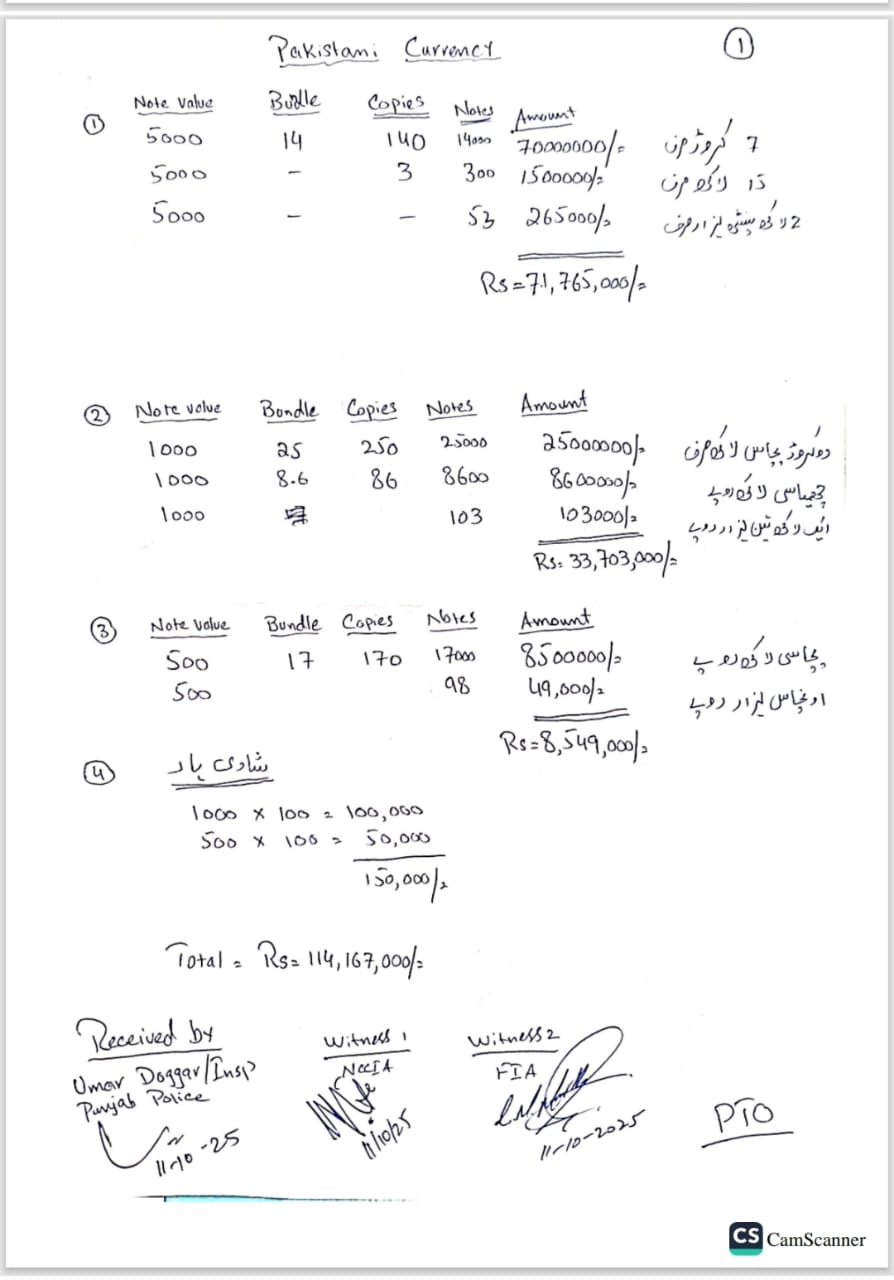 Pakistani Currency
1
Note Value Budle Copies Notes Amount
1 5000 14 140 14000 70000000/= 7 کروڑ صرف
5000 - 3 300 1500000/= 15 لاکھ صرف
5000 - - 53 265000/= 2 لاکھ پینسٹھ ہزار صرف
Rs = 71,765,000/=
2 Note value Bundle Copies Notes Amount
1000 25 250 25000 25000000/= دو کروڑ پچاس لاکھ صرف
1000 8.6 86 8600 8600000/= چھیاسی لاکھ روپے
1000 103 103000/= ایک لاکھ تین ہزار روپے
Rs = 33,703,000/=
3 Note value Bundle Copies Notes Amount
500 17 170 17000 8500000/= پچاسی لاکھ روپے
500 98 49,000/= اونچاس ہزار روپے
Rs = 8,549,000/=
4 شادی ہار
1000 x 100 = 100,000
500 x 100 = 50,000
150,000/=
Total = Rs = 114,167,000/=
Received by
Umar Doggar/Insp
Punjab Police
11-10-25
Witness 1
NCCIA
11/10/25
Witness 2
FIA
11-10-2025
PTO
CS CamScanner